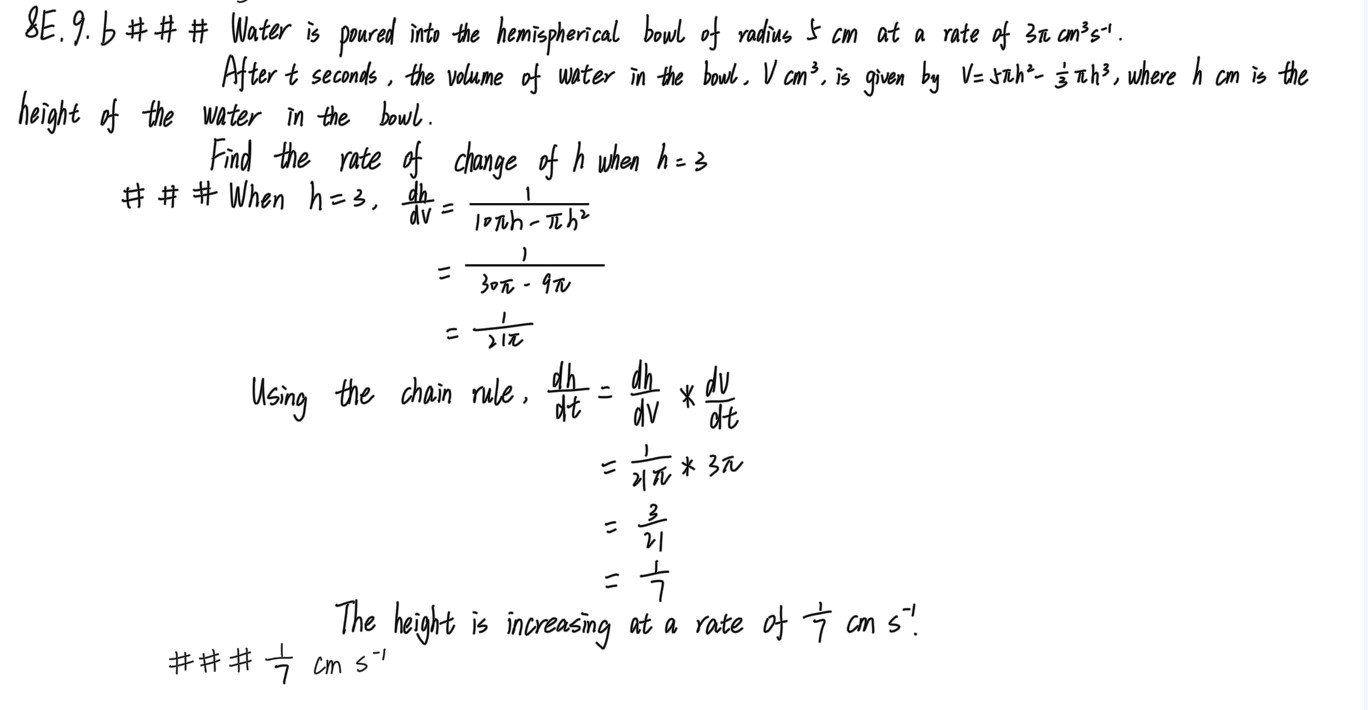 8E.9.b # # # Water is poured into the hemispherical bowl of radius 5 cm at a rate of 3π cm³s⁻¹.
After t seconds, the volume of water in the bowl, V cm³, is given by V=5πh²-⅓πh³, where h cm is the
height of the water in the bowl.
Find the rate of change of h when h=3
# # # When h=3, dh/dV = 1/(10πh-πh²)
= 1/(30π-9π)
= 1/(21π)
Using the chain rule, dh/dt = dh/dV * dV/dt
= 1/(21π) * 3π
= 3/21
= 1/7
The height is increasing at a rate of 1/7 cm s⁻¹.
### 1/7 cm s⁻¹